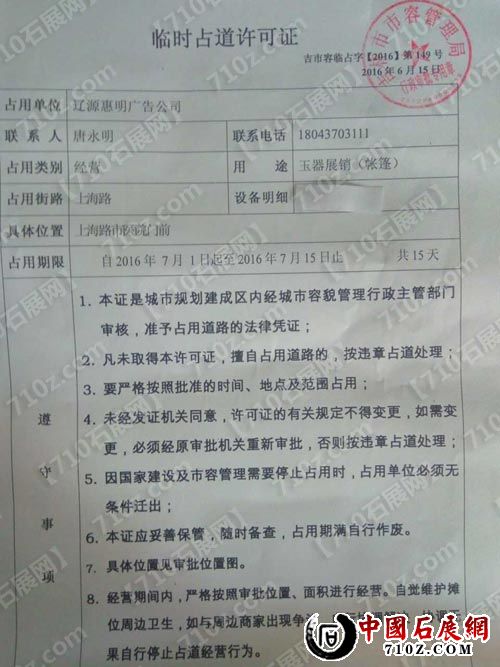 临时占道许可证
吉市容临占字【2016】第149号
2016年6月15日
市市容管理局
行政审批专用章
占用单位 辽源惠明广告公司
联系人 唐永明 联系电话 18043703111
占用类别 经营 用途 玉器展销（帐篷）
占用街路 上海路 设备明细
具体位置 上海路市医院门前
占用期限 自2016年7月1日起至2016年7月15日止 共15天
遵守事项
1．本证是城市规划建成区内经城市容貌管理行政主管部门
审核，准予占用道路的法律凭证；
2．凡未取得本许可证，擅自占用道路的，按违章占道处理；
3．要严格按照批准的时间、地点及范围占用；
4．未经发证机关同意，许可证的有关规定不得变更，如需变
更，必须经原审批机关重新审批，否则按违章占道处理；
5．因国家建设及市容管理需要停止占用时，占用单位必须无
条件迁出；
6．本证应妥善保管，随时备查，占用期满自行作废。
7．具体位置见审批位置图。
8．经营期间内，严格按照审批位置、面积进行经营。自觉维护摊
位周边卫生，如与周边商家出现争
果自行停止占道经营行为。
【710石展网】
710z.com
中國石展网